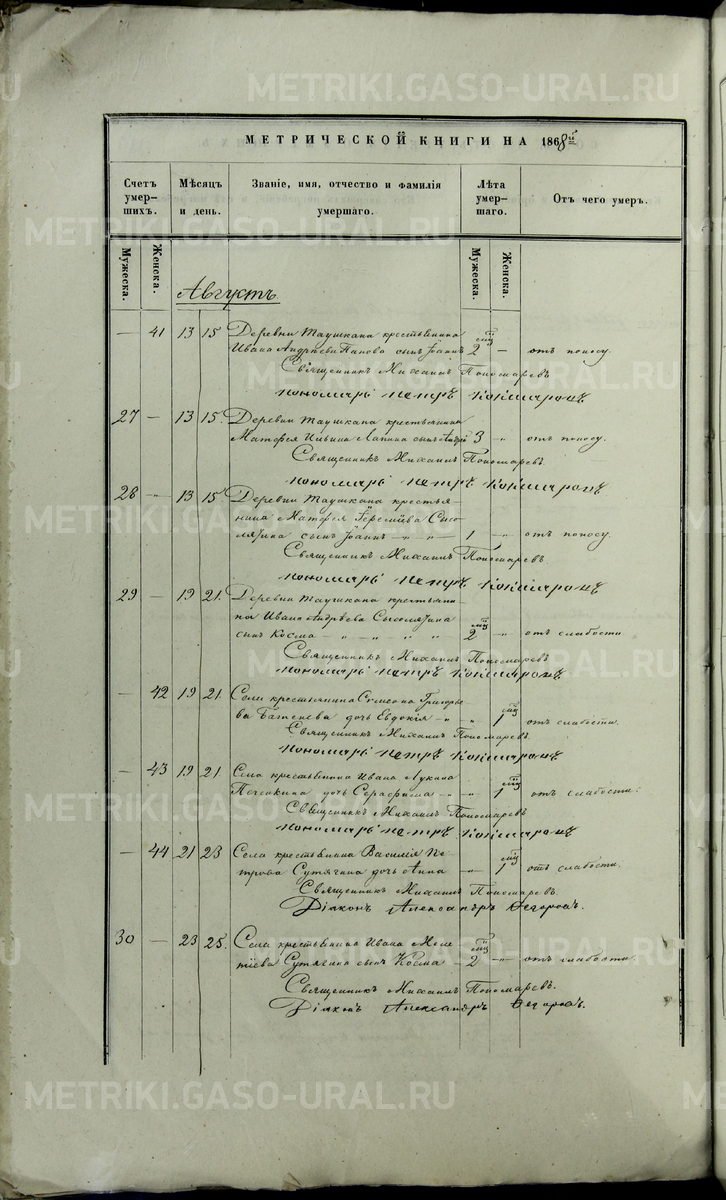 МЕТРИЧЕСКОЙ КНИГИ НА 1868й
Счетъ умер-шихъ.
Мѣсяцъ и день.
Званіе, имя, отчество и фамилія умершаго.
Лѣта умер-шаго.
Отъ чего умеръ.
Мужеска.
Женска.
Мужеска.
Женска.
Августъ.
— 41 13 15 Деревни Таушкана крестьянина
Ивана Андреева Панова сынъ Іоаннъ 2 мц — отъ поносу.
Священникъ Михаилъ Пономаревъ
пономарь Петръ Кокшаровъ
27 — 13 15. Деревни Таушкана крестьянина
Матфея Ильина Лапина сынъ Андрей 3 " отъ поносу.
Священникъ Михаилъ Пономаревъ.
пономарь Петръ Кокшаровъ
28 " 13 15. Деревни Таушкана крестья-
нина Матфея
сынъ Іоаннъ — " — " 1 — " отъ поносу.
Священникъ Михаилъ Пономаревъ.
пономарь Петръ Кокшаровъ
29 — 19 21. Деревни Таушкана крестьяни-
на Ивана Андрѣева
сынъ Косма — " — " " 2 мц " отъ слабости
Священникъ Михаилъ Пономаревъ
пономарь Петръ Кокшаровъ
— 42 19 21. Села крестьянина Симеона Григорье-
ва Баженева дочь Евдокія — " " 1 мц отъ слабости.
Священникъ Михаилъ Пономаревъ.
пономарь Петръ Кокшаровъ
— 43 19 21 Села крестьянина Ивана Лукина
Печенкина дочь Серафима — " " 1 мц отъ слабости.
Священникъ Михаилъ Пономаревъ
пономарь Петръ Кокшаровъ
— 44 21 23 Села крестьянина Василія Пе-
трова Сутягина дочь Анна — " 1 мц отъ слабости.
Священникъ Михаилъ Пономаревъ.
Діаконъ Александръ Ѳедоровъ.
30 — 23 25. Села крестьянина Ивана Меле-
тіева Сутягина сынъ Косма — 2 мц — отъ слабости.
Священникъ Михаилъ Пономаревъ.
Діаконъ Александръ Ѳедоровъ.
METRIKI.GASO-URAL.RU